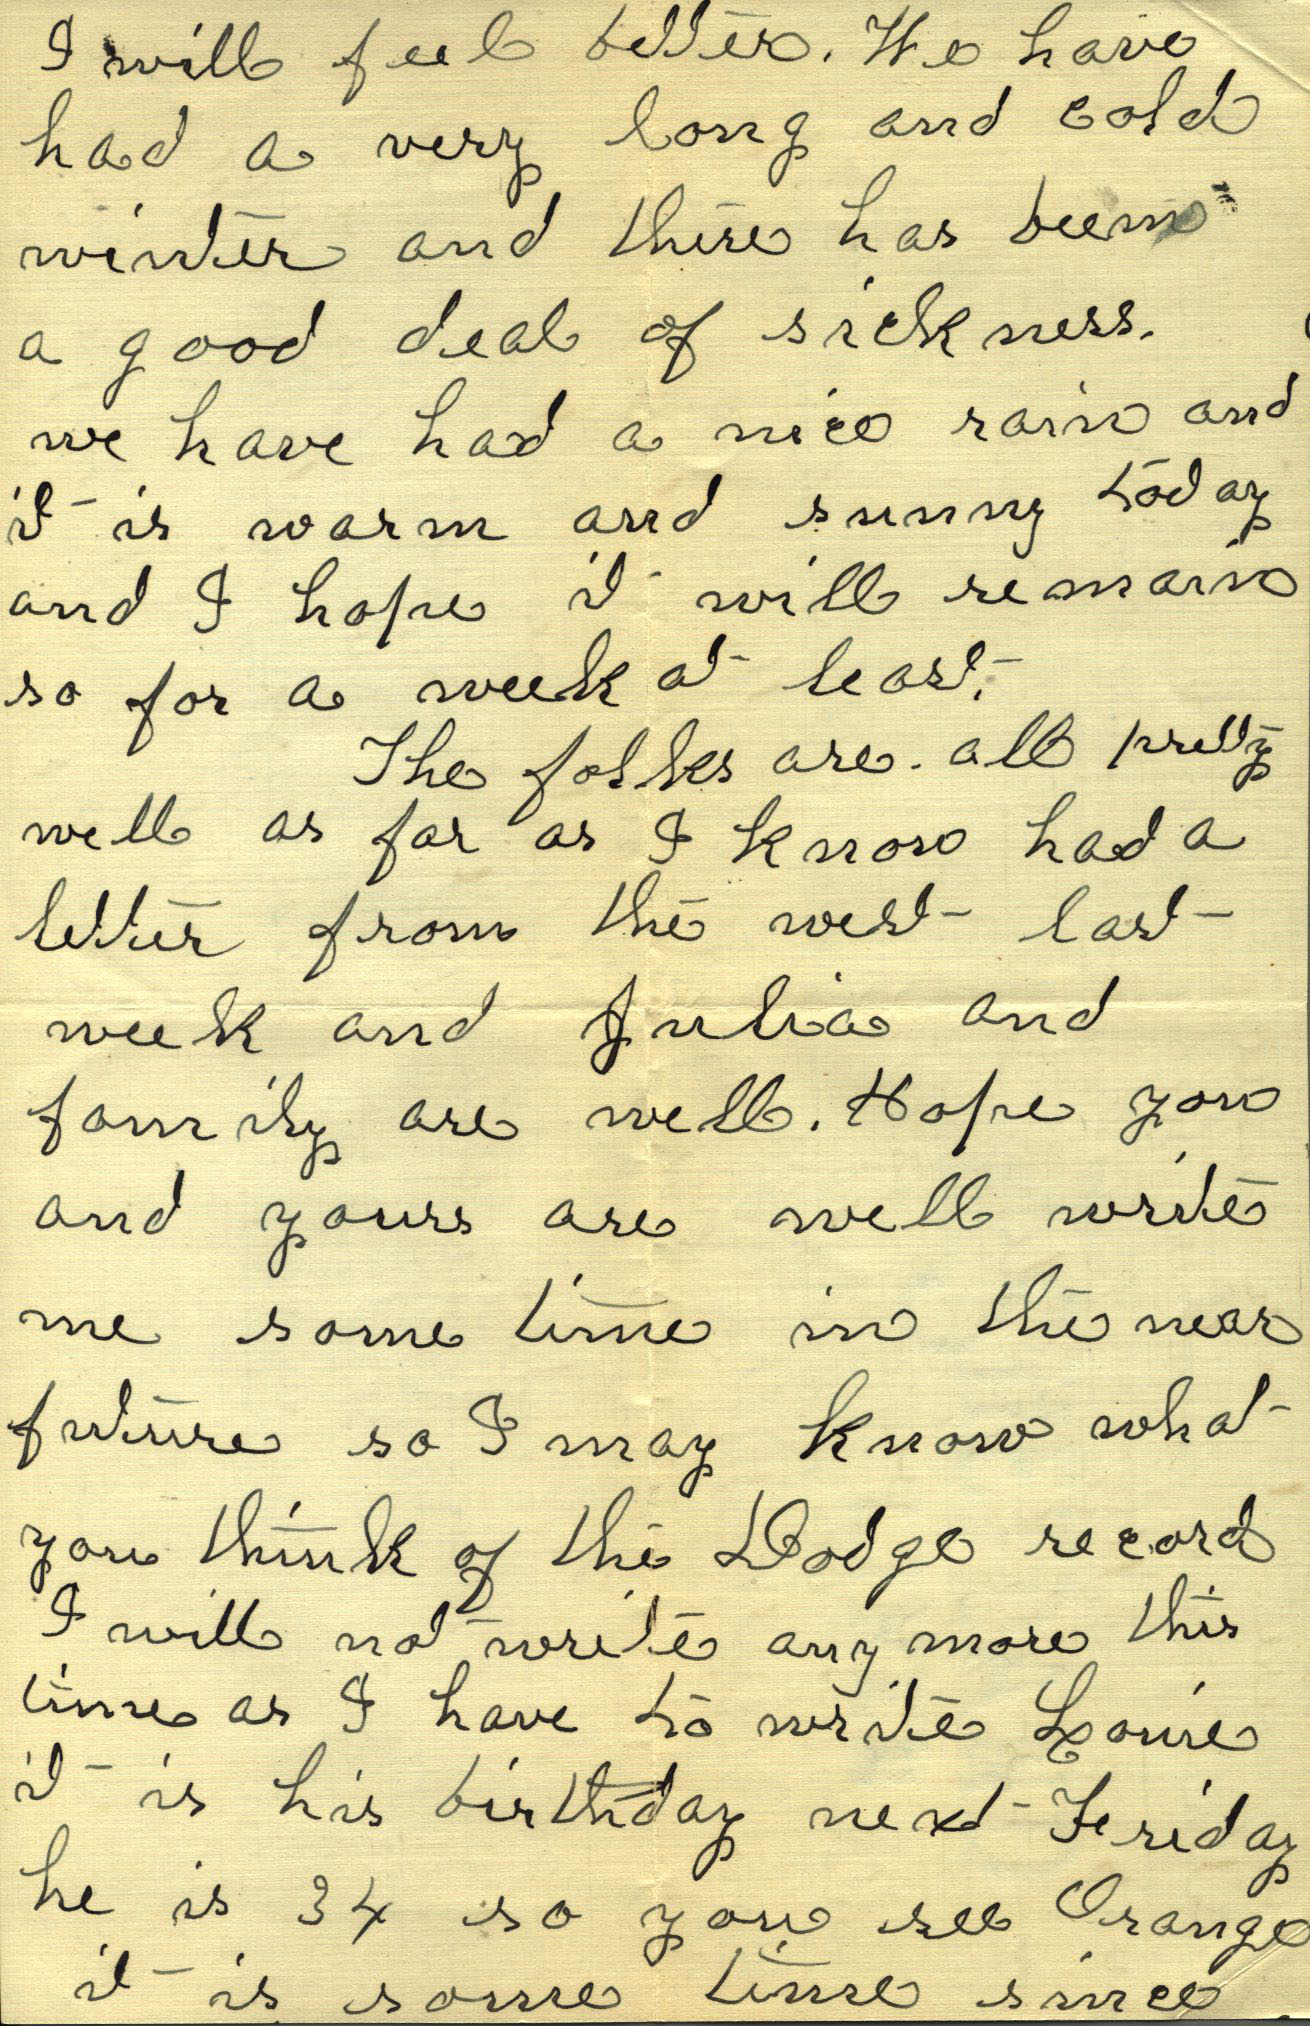 I will feel better. We have
had a very long and cold
winter and there has been
a good deal of sickness.
we have had a nice rain and
it is warm and sunny today
and I hope it will remain
so for a week at least.
The folks are. all pretty
well as far as I know had a
letter from the west last
week and Julia and
family are well. Hope you
and yours are well write
me some time in the near
future so I may know what
you think of the Dodge record
I will not write any more this
time as I have to write Louie
it is his birthday next Friday
he is 34 so you see Orange
it is some time since